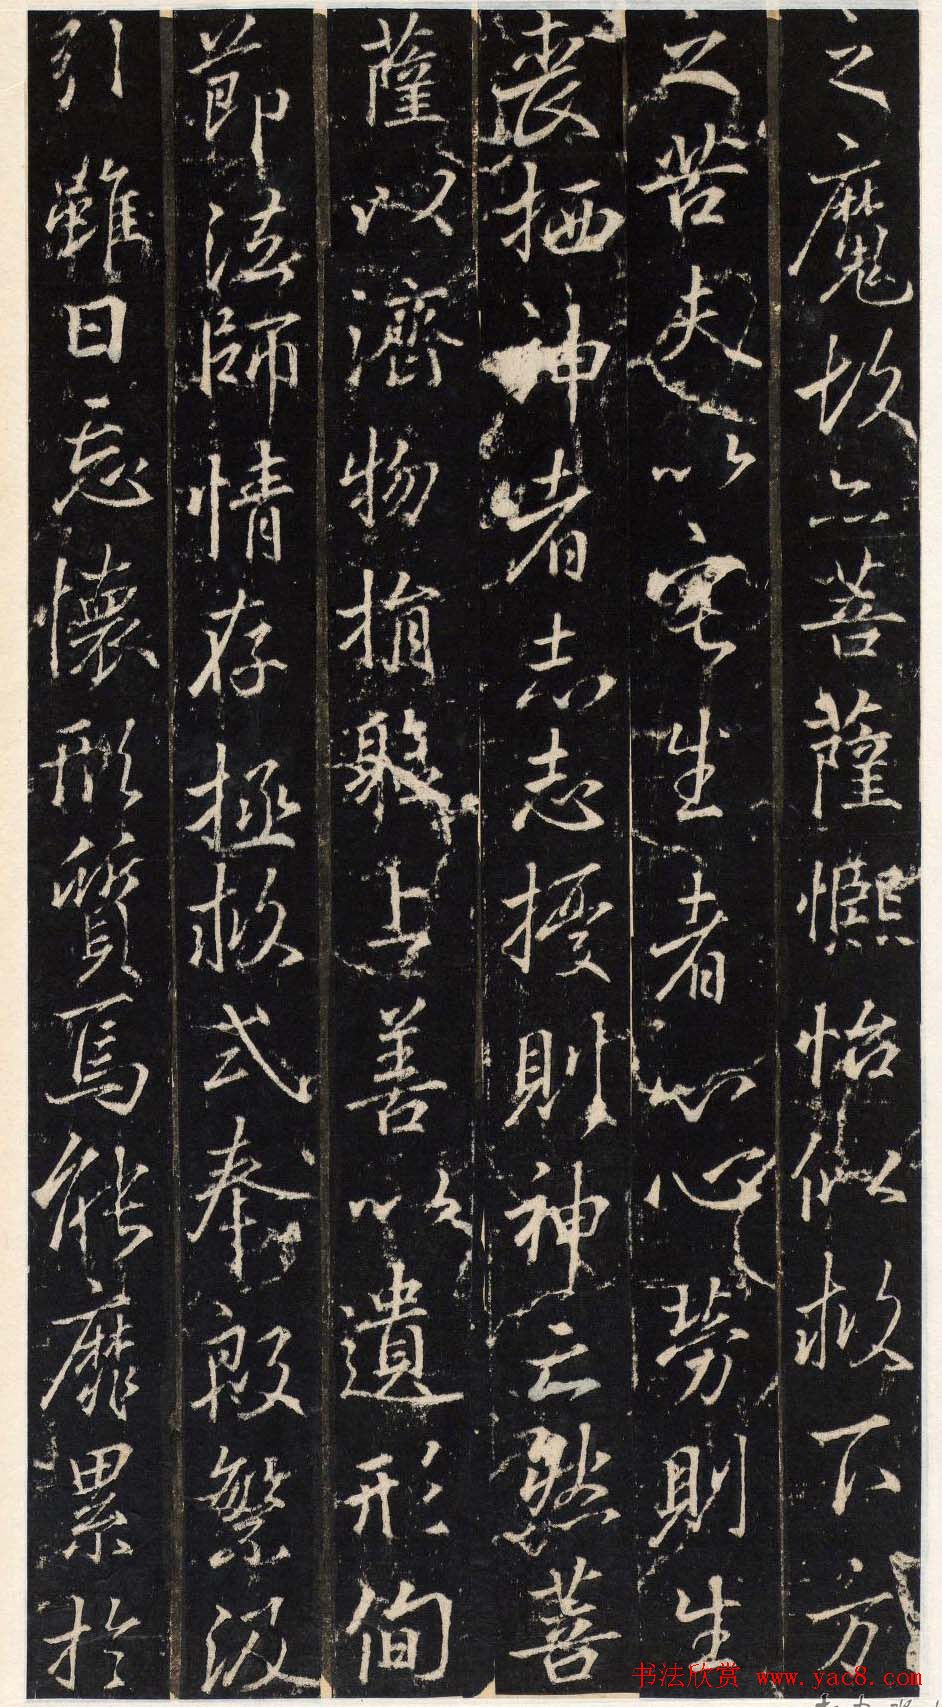 之魔故亦菩薩怡似救下方
之苦夫以宅生者心心勞則生
喪栖神者志志擾則神亡然菩
薩以濟物捐聚上善以遺形侚
節法師情存拯救式奉殷繁汲
引雖曰忘懷形質焉能靡累於
书法欣赏 www.yac8.com